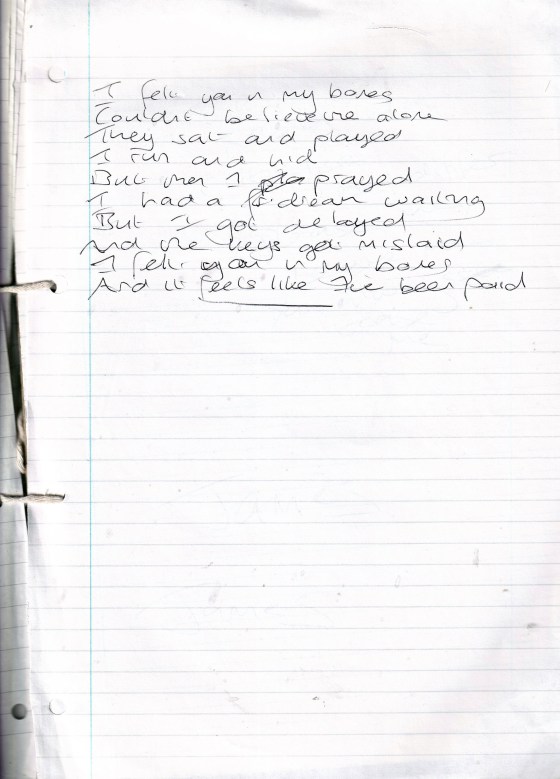 I felt you in my bones
Couldnt believe the alone
They sat and played
I run and hid
But then I prayed
I had a dream waiting
But I got delayed
And the keys get mislaid
I felt you in my bones
And it feels like I've been paid